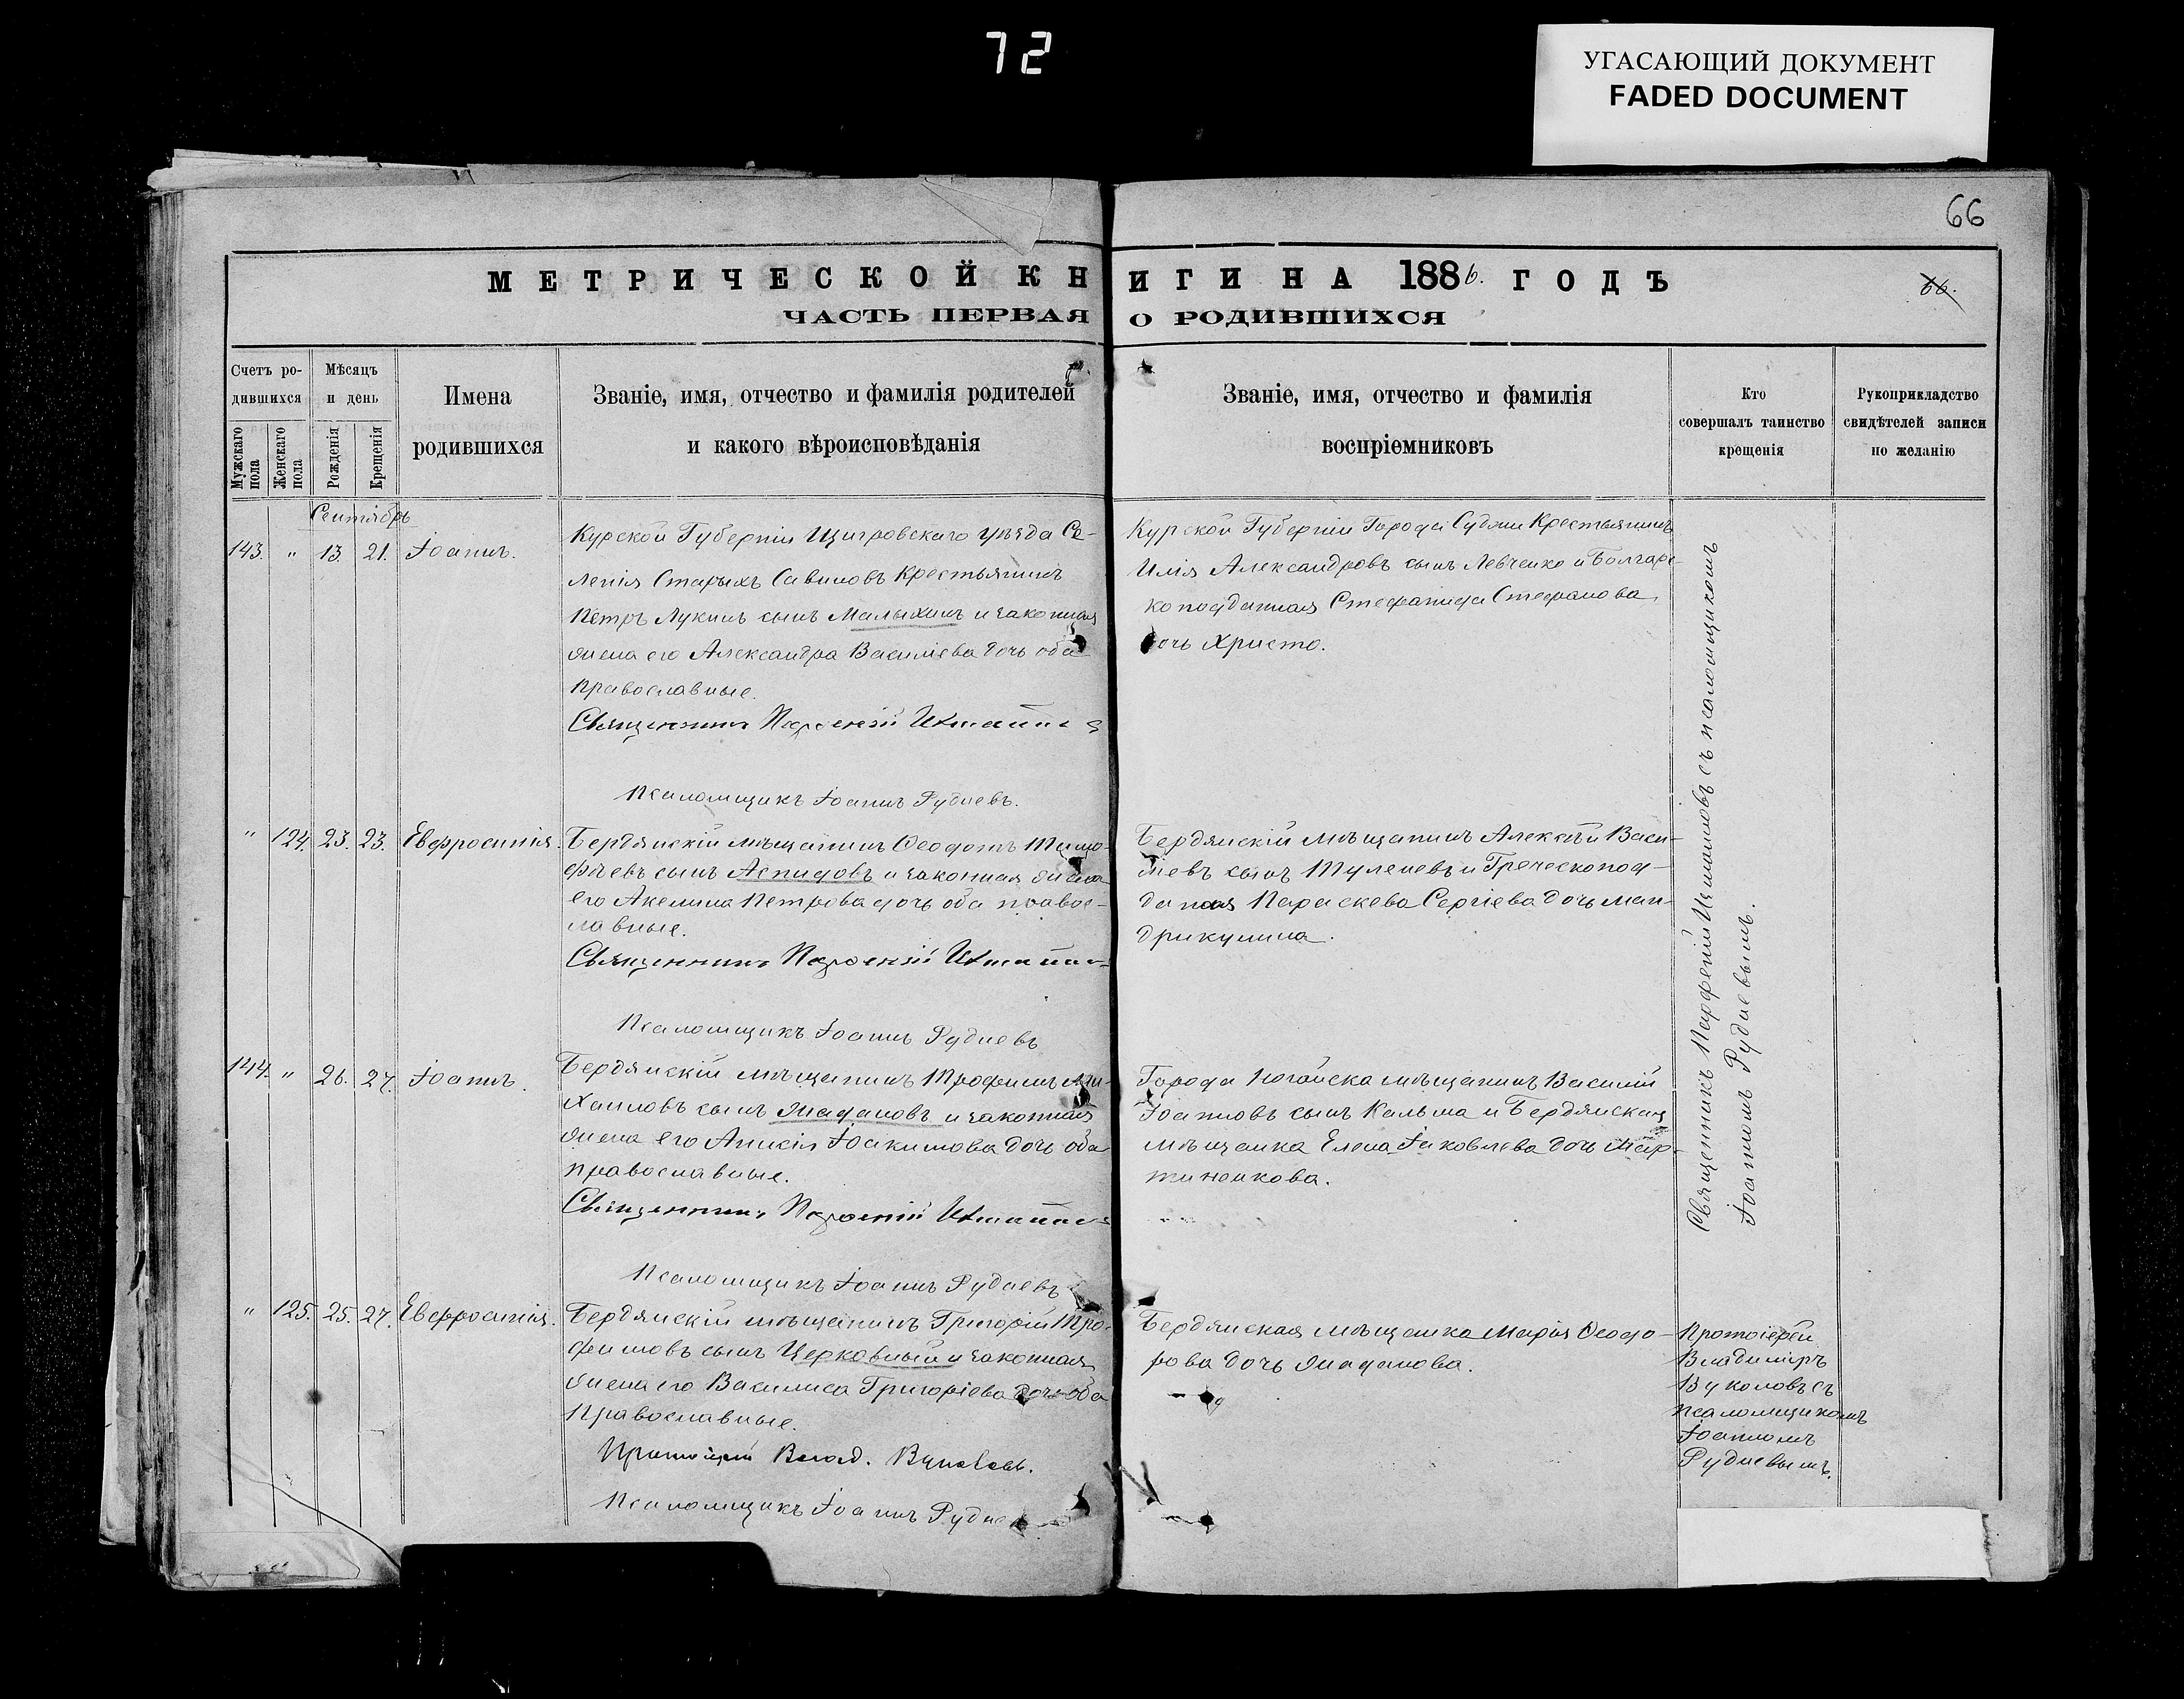 72
УГАСАЮЩИЙ ДОКУМЕНТ
FADED DOCUMENT
66
МЕТРИЧЕСКОЙ КНИГИ НА 1886. ГОДЪ
66.
ЧАСТЬ ПЕРВАЯ О РОДИВШИХСЯ
Счетъ ро-
дившихся
Мужскаго пола
Женскаго пола
Мѣсяцъ
и день
Рожденія
Крещенія
Имена
родившихся
Званіе, имя, отчество и фамилія родителей
и какого вѣроисповѣданія
Званіе, имя, отчество и фамилія
воспріемниковъ
Кто
совершалъ таинство
крещенія
Рукоприкладство
свидѣтелей записи
по желанію
Сентябрь
143. " 13. 21. Іоаннъ.
Курской Губерніи Щигровскаго уѣзда Се-
ленія Старыхъ Савиновъ Крестьянинъ
Петръ Лукинъ сынъ Малыхинъ и законная
жена его Александра Василіева дочь оба
православные.
Священникъ Парѳеній
Псаломщикъ Іоаннъ Рудневъ.
Курской Губерніи Города Суджи Крестьянинъ
Илія Александровъ сынъ Левченко и Болгарс-
ко подданная Стефанида Стефанова
дочь Христо.
" 124. 23. 23. Евфросинія.
Бердянскій мѣщанинъ Ѳеодотъ Тимо-
фѣевъ сынъ Аспидовъ и законная жена
его Акелина Петрова дочь оба правос-
лавные.
Священникъ Парѳеній
Псаломщикъ Іоаннъ Рудневъ
Бердянскій мѣщанинъ Алексѣй Васи-
ліевъ сынъ Туленевъ и Греческопод-
данная Параскева Сергіева дочь Ман-
дрикулина.
144. " 26. 27. Іоаннъ.
Бердянскій мѣщанинъ Трофимъ Ми-
хаиловъ сынъ Жадановъ и законная
жена его Анисія Іоакимова дочь оба
православные.
Священникъ Парѳеній
Псаломщикъ Іоаннъ Рудневъ
Города Ногайска мѣщанинъ Василій
Іоанновъ сынъ Кальма и Бердянская
мѣщанка Елена Іаковлева дочь Мар-
тиненкова.
Священникъ Парѳеній съ псаломщикомъ
Іоанномъ Рудневымъ.
" 125. 25. 27. Евфросинія.
Бердянскій мѣщанинъ Григорій Тро-
фимовъ сынъ Церковный и законная
жена его Василиса Григоріева дочь оба
Православные.
Протоіерей Влад. Вуколовъ.
Псаломщикъ Іоаннъ Рудне
Бердянская мѣщанка Марія Ѳеодо-
рова дочь Жаданова.
Протоіерей
Владиміръ
Вуколовъ съ
псаломщикомъ
Іоанномъ
Рудневымъ.